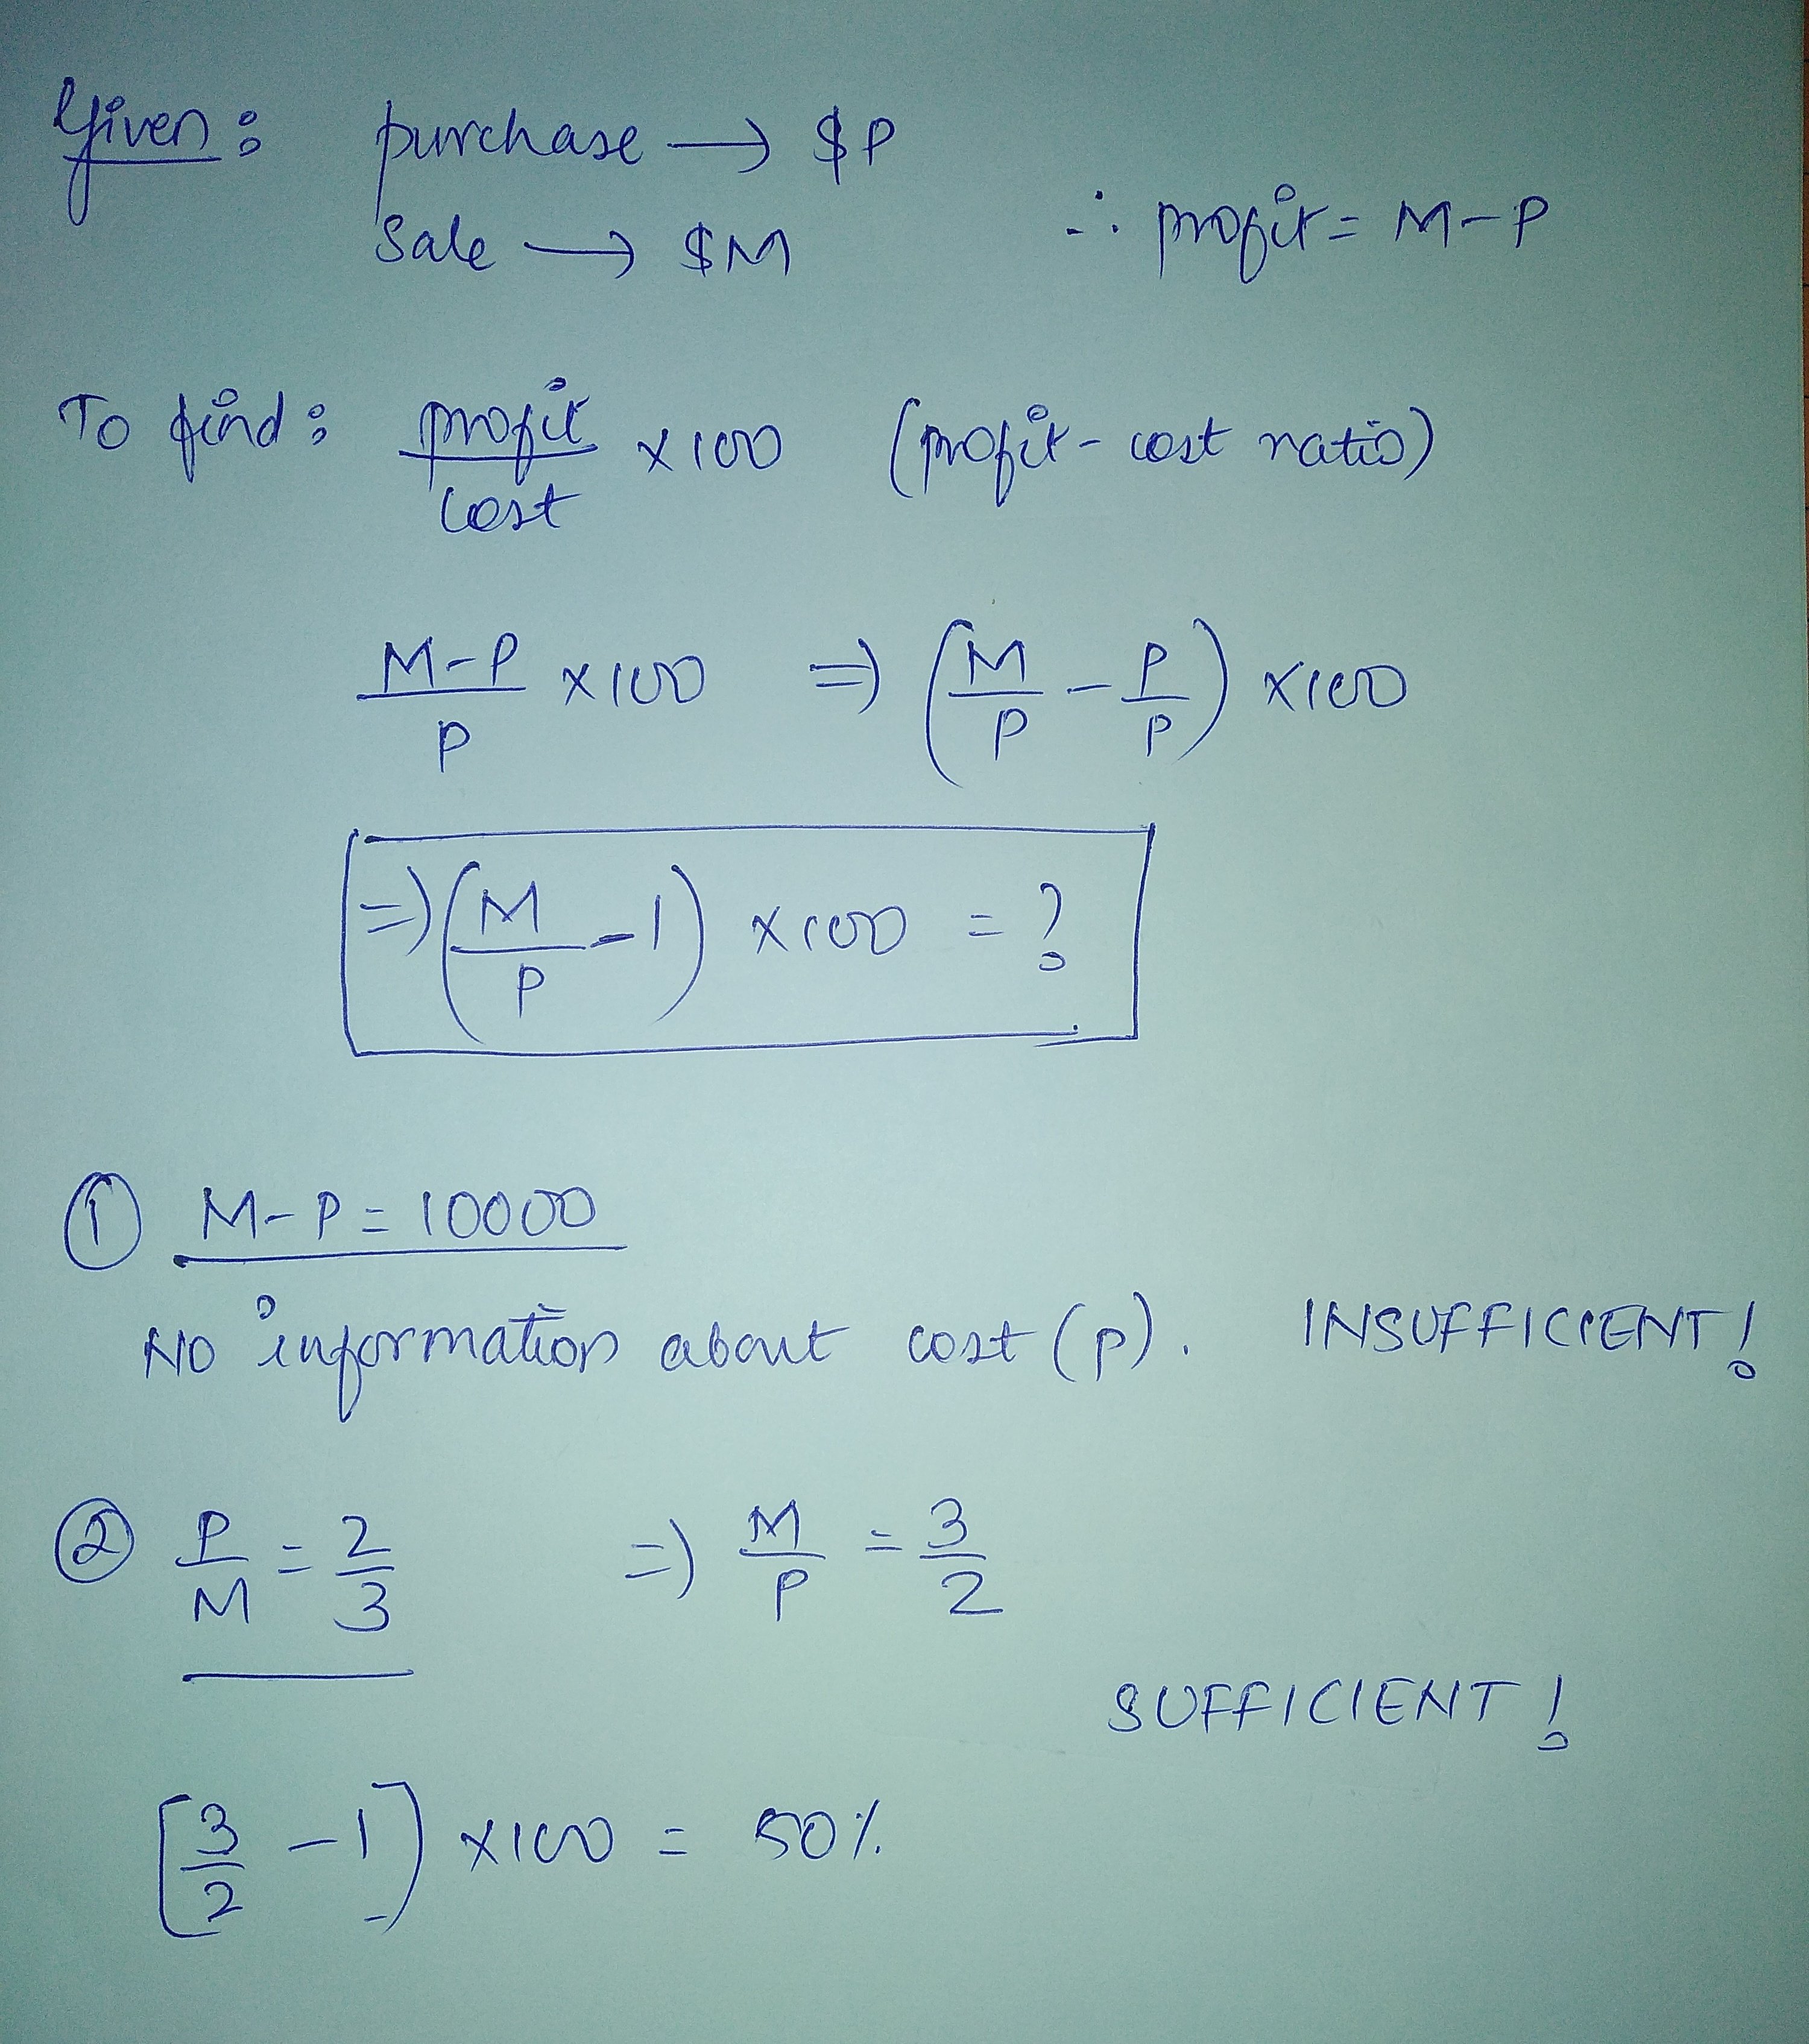 Given: purchase → $P
Sale → $M ∴ profit = M-P
To find: profit/cost ×100 (profit-cost ratio)
M-P/P ×100 ⇒ (M/P - P/P) ×100
⇒ (M/P - 1) ×100 = ?
① M-P = 10000
NO information about cost (p). INSUFFICIENT!
② P/M = 2/3 ⇒ M/P = 3/2
SUFFICIENT!
[3/2 - 1] ×100 = 50%